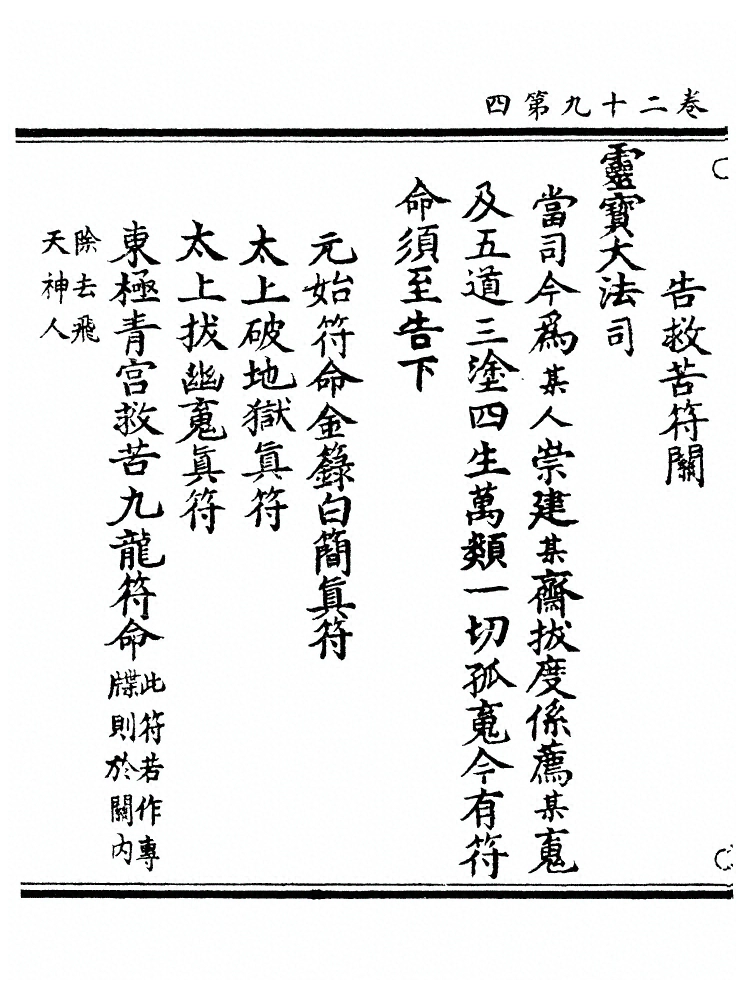 卷二十九第四
告救苦符關
靈寶大法司
當司今爲某人崇建某齋拔度係薦某䰟
及五道三塗四生萬類一切孤䰟今有符
命須至告下
元始符命金籙白簡眞符
太上破地獄眞符
太上拔幽䰟眞符
東極青宮救苦九龍符命此符若作專
牒則於關内
除去飛
天神人